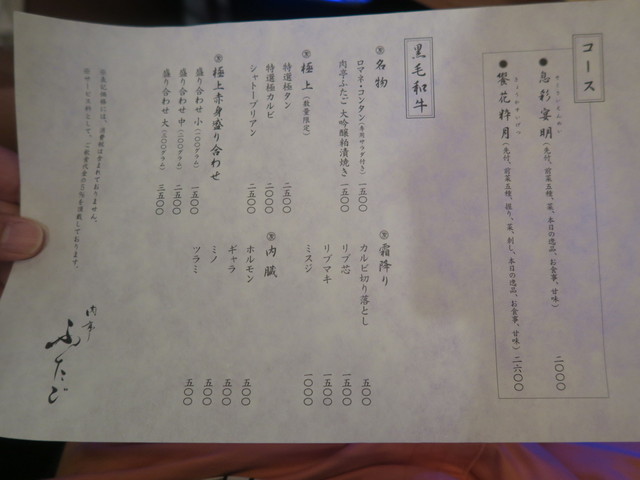 コース
●息彩宴明(先付、前菜五種、菜、本日の逸品、お食事、甘味) 二〇〇〇
●饗花粋月(先付、前菜五種、握り、菜、刺し、本日の逸品、お食事、甘味) 二六〇〇
黒毛和牛
名物
ロマネ・コンタン(専用サラダ付き) 一五〇〇
肉亭ふたご 大吟醸粕漬焼き 一五〇〇
極上(数量限定)
特選極タン 二五〇〇
特選極カルビ 二〇〇〇
シャトーブリアン 二五〇〇
極上赤身盛り合わせ
盛り合わせ 小(一〇〇グラム) 一五〇〇
盛り合わせ 中 二五〇〇
盛り合わせ 大 三五〇〇
霜降り
カルビ切り落とし 五〇〇
リブ芯 一五〇〇
リブマキ 一五〇〇
ミスジ 一〇〇〇
内臓
ホルモン 五〇〇
ギャラ 五〇〇
ミノ 五〇〇
ツラミ 五〇〇
※表記価格には、消費税は含まれておりません。
肉亭
ふたご